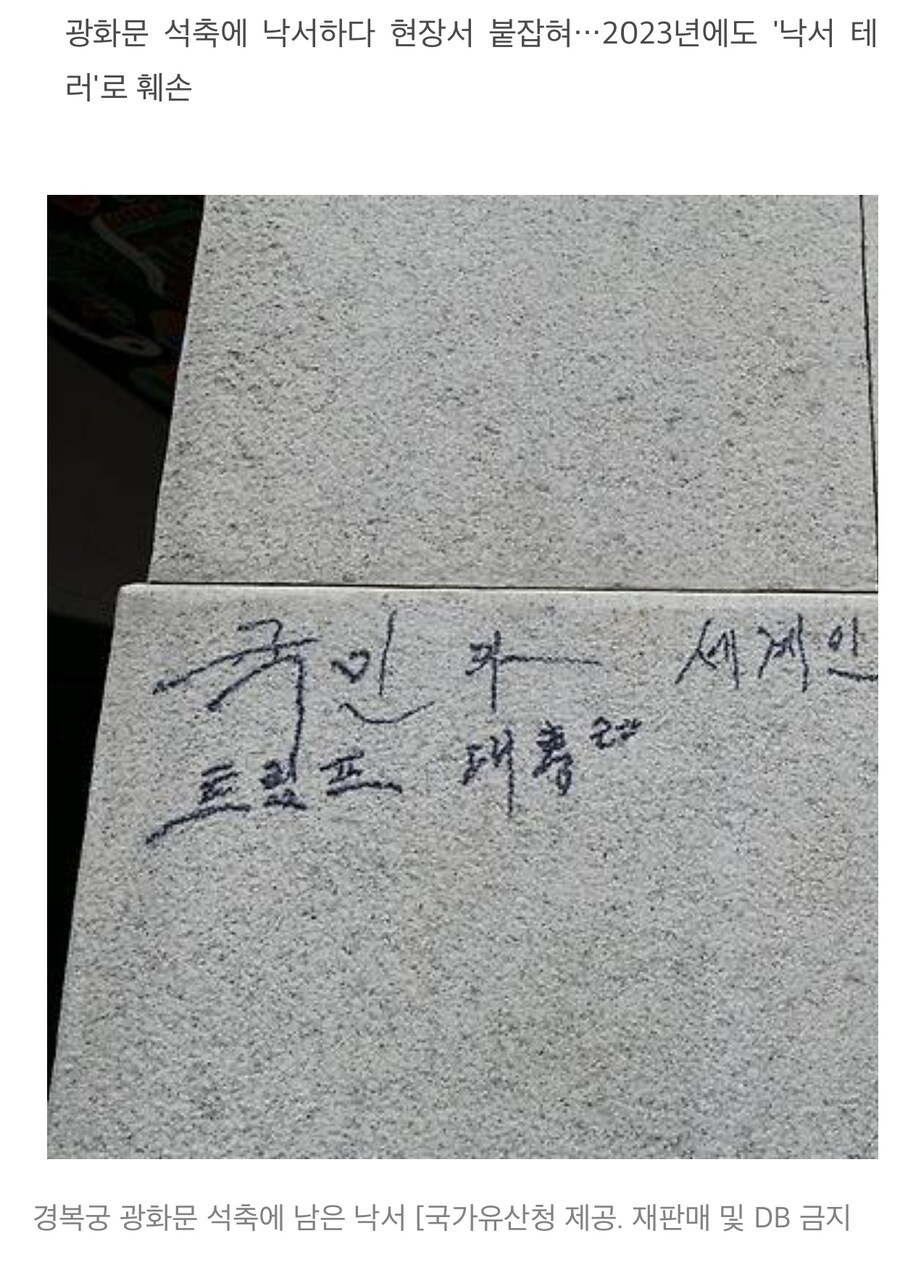 광화문 석축에 낙서하다 현장서 붙잡혀…2023년에도 '낙서 테
러'로 훼손
국민과 세계인
트럼프 대통
경복궁 광화문 석축에 남은 낙서 [국가유산청 제공. 재판매 및 DB 금지